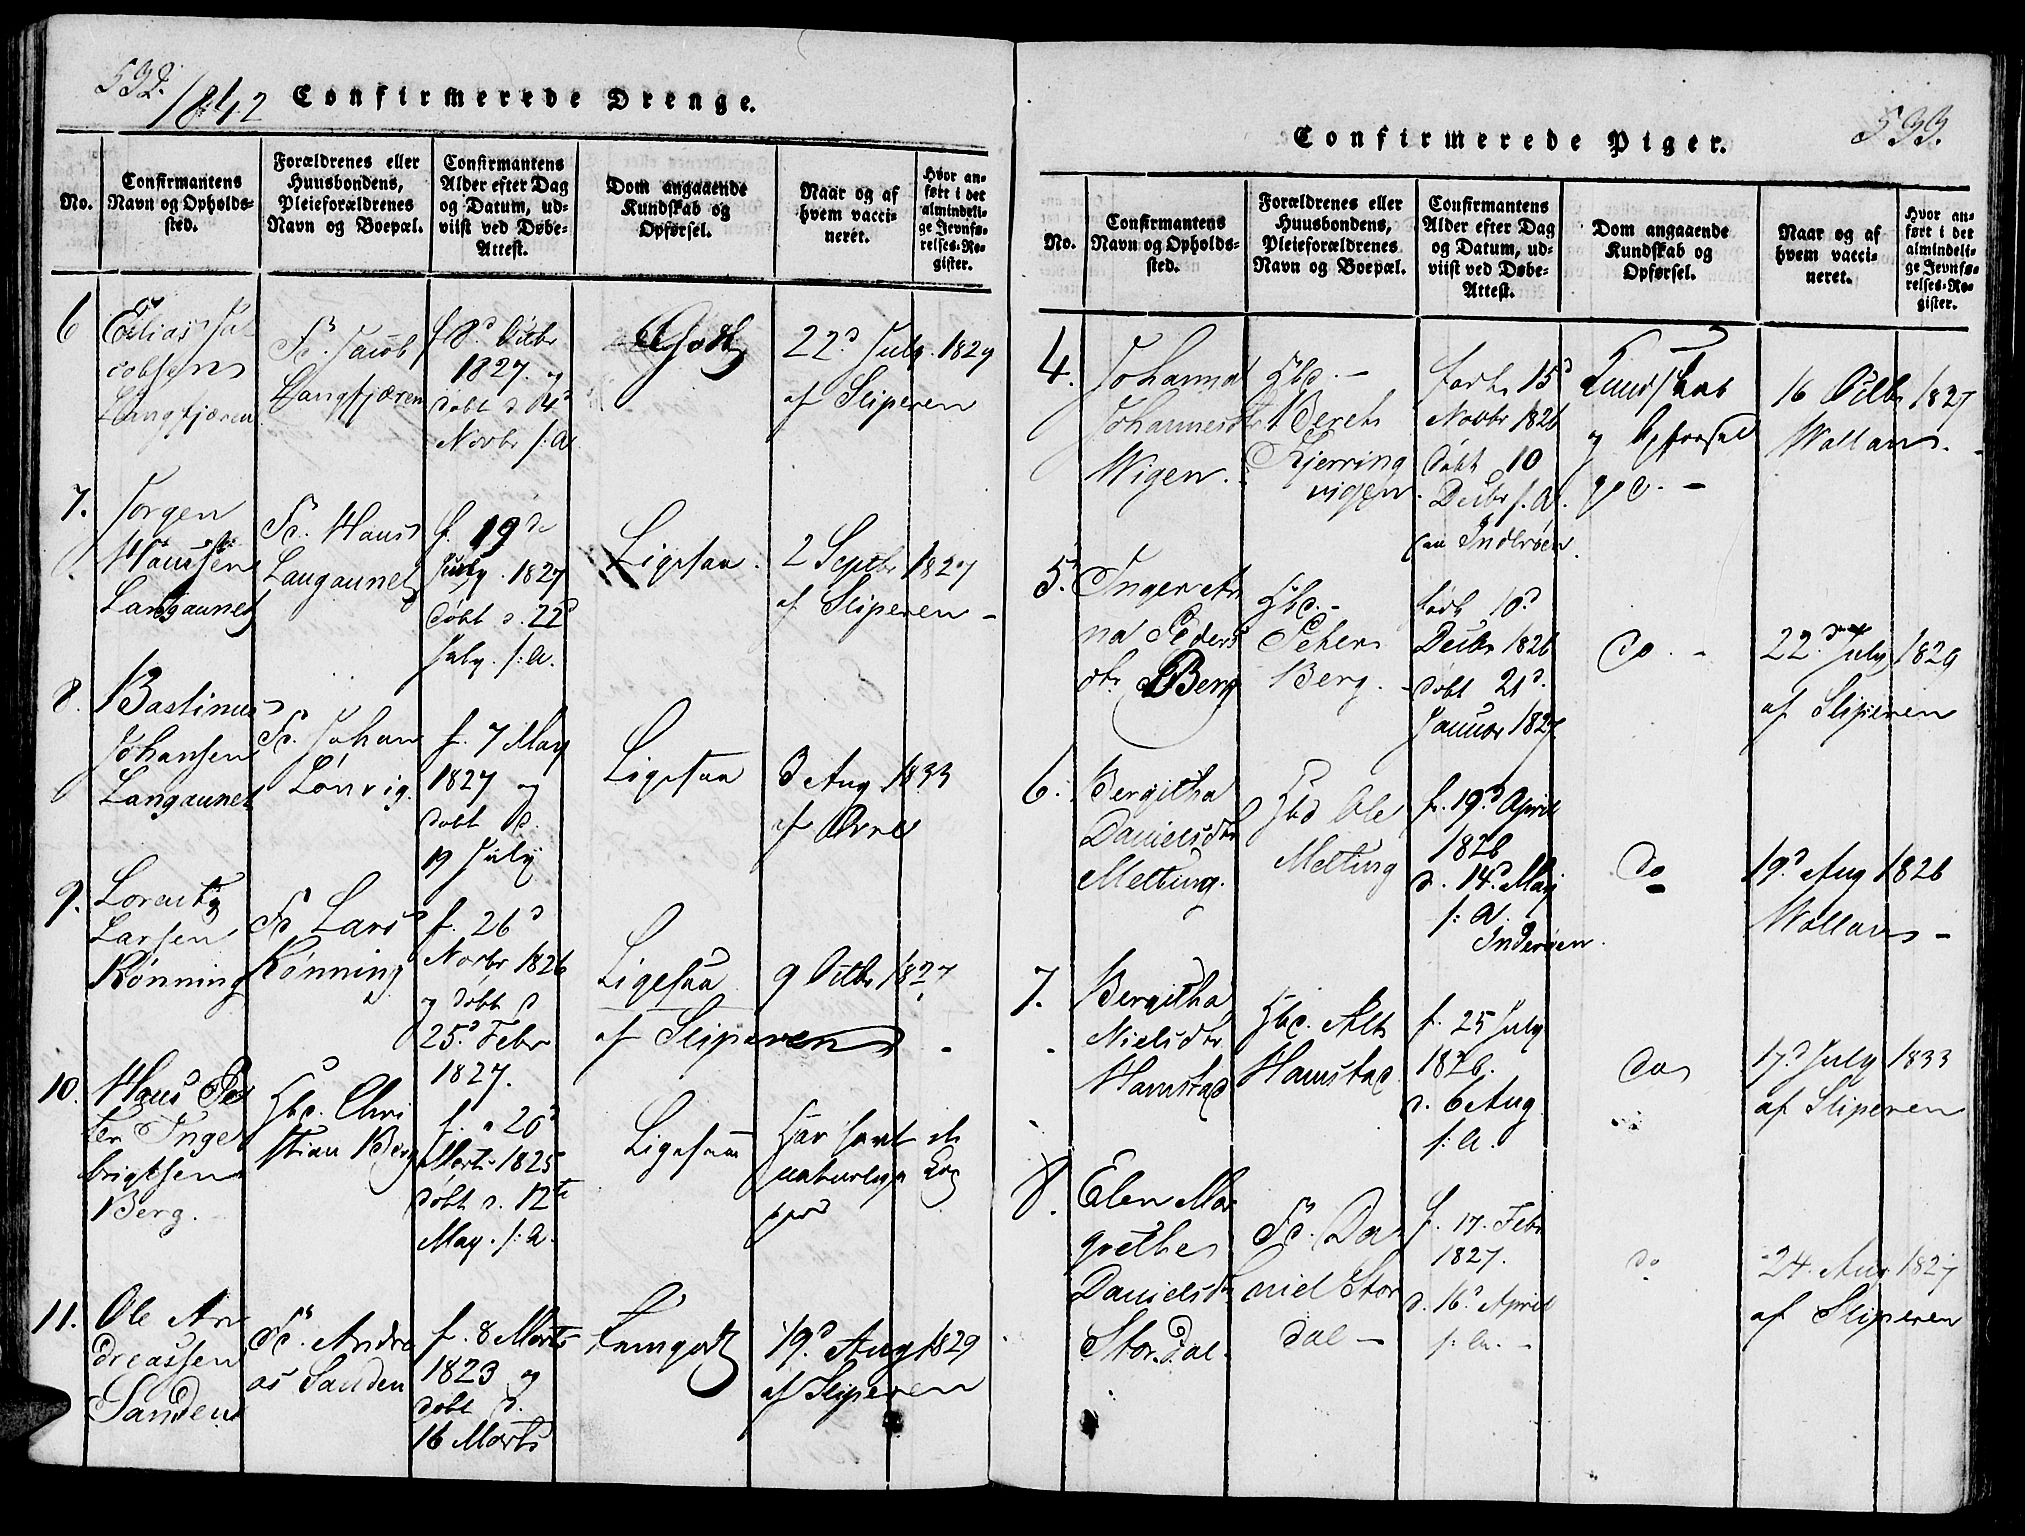 532.
1842 Confirmerede Drenge.
No.
Confirmantens
Navn og Opholds-
sted.
Forældrenes eller
Huusbondens,
Pleieforældrenes
Navn og Boepæl.
Confirmantens
Alder efter Dag
og Datum, ud-
viist ved Døbe-
Attest.
Dom angaaende
Kundskab og
Opførsel.
Naar og af
hvem vacci-
neret.
Hvor an-
ført i det
almindeli-
ge Jevnfø-
relses-Re-
gister.
6
Elias Ja-
cobsen
Langfjæren
Fd. Jacob
Langfjæren
f. 8d Octbr
1827. og
døbt d. 4d
Novbr s: A
Godt
22d July 1829
af Sliperen
7.
Jørgen
Hansen
Langaunet
Fd. Hans
Langaunet
f. 19d
July. 1827
døbt d. 22d
July. s: A.
Ligesaa.
2 Septbr 1827
af Sliperen -
8.
Bastinus
Johansen
Langaunet
Fd. Johan
Lønvig.
f. 7 May
1827 og
døbt d.
19 July
Ligesaa
3 Aug 1833
af
9.
Lorentz
Larsen
Rønning
Fd Lars
Rønning
f. 26d
Novbr 1826
og døbt d
25d Febr
1827.
Ligesaa
9 Octbr 1827
af Sliperen -
10.
Hans Pe
ter Inge
brigtsen
Berg.
Hbd. Chri
stian Berg
f. 20d
Marts 1825
døbt d. 12te
May. s: A.
Ligesaa
Har havt de
naturlige
Kop
11.
Ole An
dreassen
Sanden
Fd. Andre
as Sanden
f. 8 Marts
1823 og
døbt d.
16 Marts
Temgodt
19d Aug 1829
af Sliperen
533.
Confirmerede Piger.
No.
Confirmantens
Navn og Opholds-
sted.
Forældrenes eller
Huusbondens,
Pleieforældrenes
Navn og Boepæl.
Confirmantens
Alder efter Dag
og Datum, ud-
viist ved Døbe-
Attest.
Dom angaaende
Kundskab og
Opførsel.
Naar og af
hvem vacci-
neret.
Hvor an-
ført i det
almindeli-
ge Jevnfø-
relses-Re-
gister.
4.
Johanna
Johannesdtr
Wigen.
Hbd. -
Bereth
Kjerring
vigen.
født 15d
Novbr 1826
døbt 10
Decbr s. A.
paa Inderøen.
Kundskab
og Opførsel
god. -
16 Octbr 1827
Wollan -
5.
Inger An
na Peders
dtr Berg
Hbd. -
Peter
Berg. -
født 10d
Decbr 1826
døbt 21d.
Januar 1827
do. -
22d July 1829
af Sliperen
6.
Bergitha
Danielsdtr
Meltung.
Hbd Ole
Meltung
f. 19d April
1826
d. 14d May
s: A.
Inderøen.
do
19d Aug 1826
Wollan -
7.
Bergitha
Nielsdtr
Hamstad
Hbd. Alt
Hamstad
f. 25 July
1826.
d. 6 Aug
s: A.
do
17d July 1833
af Sliperen
8.
Elen Mar
grethe
Danielsdtr
Stordal.
Fd. Da
niel Stor
dal -
f. 17. Febr
1827.
d. 16d April
s: A. -
do
24. Aug 1827
af Sliperen